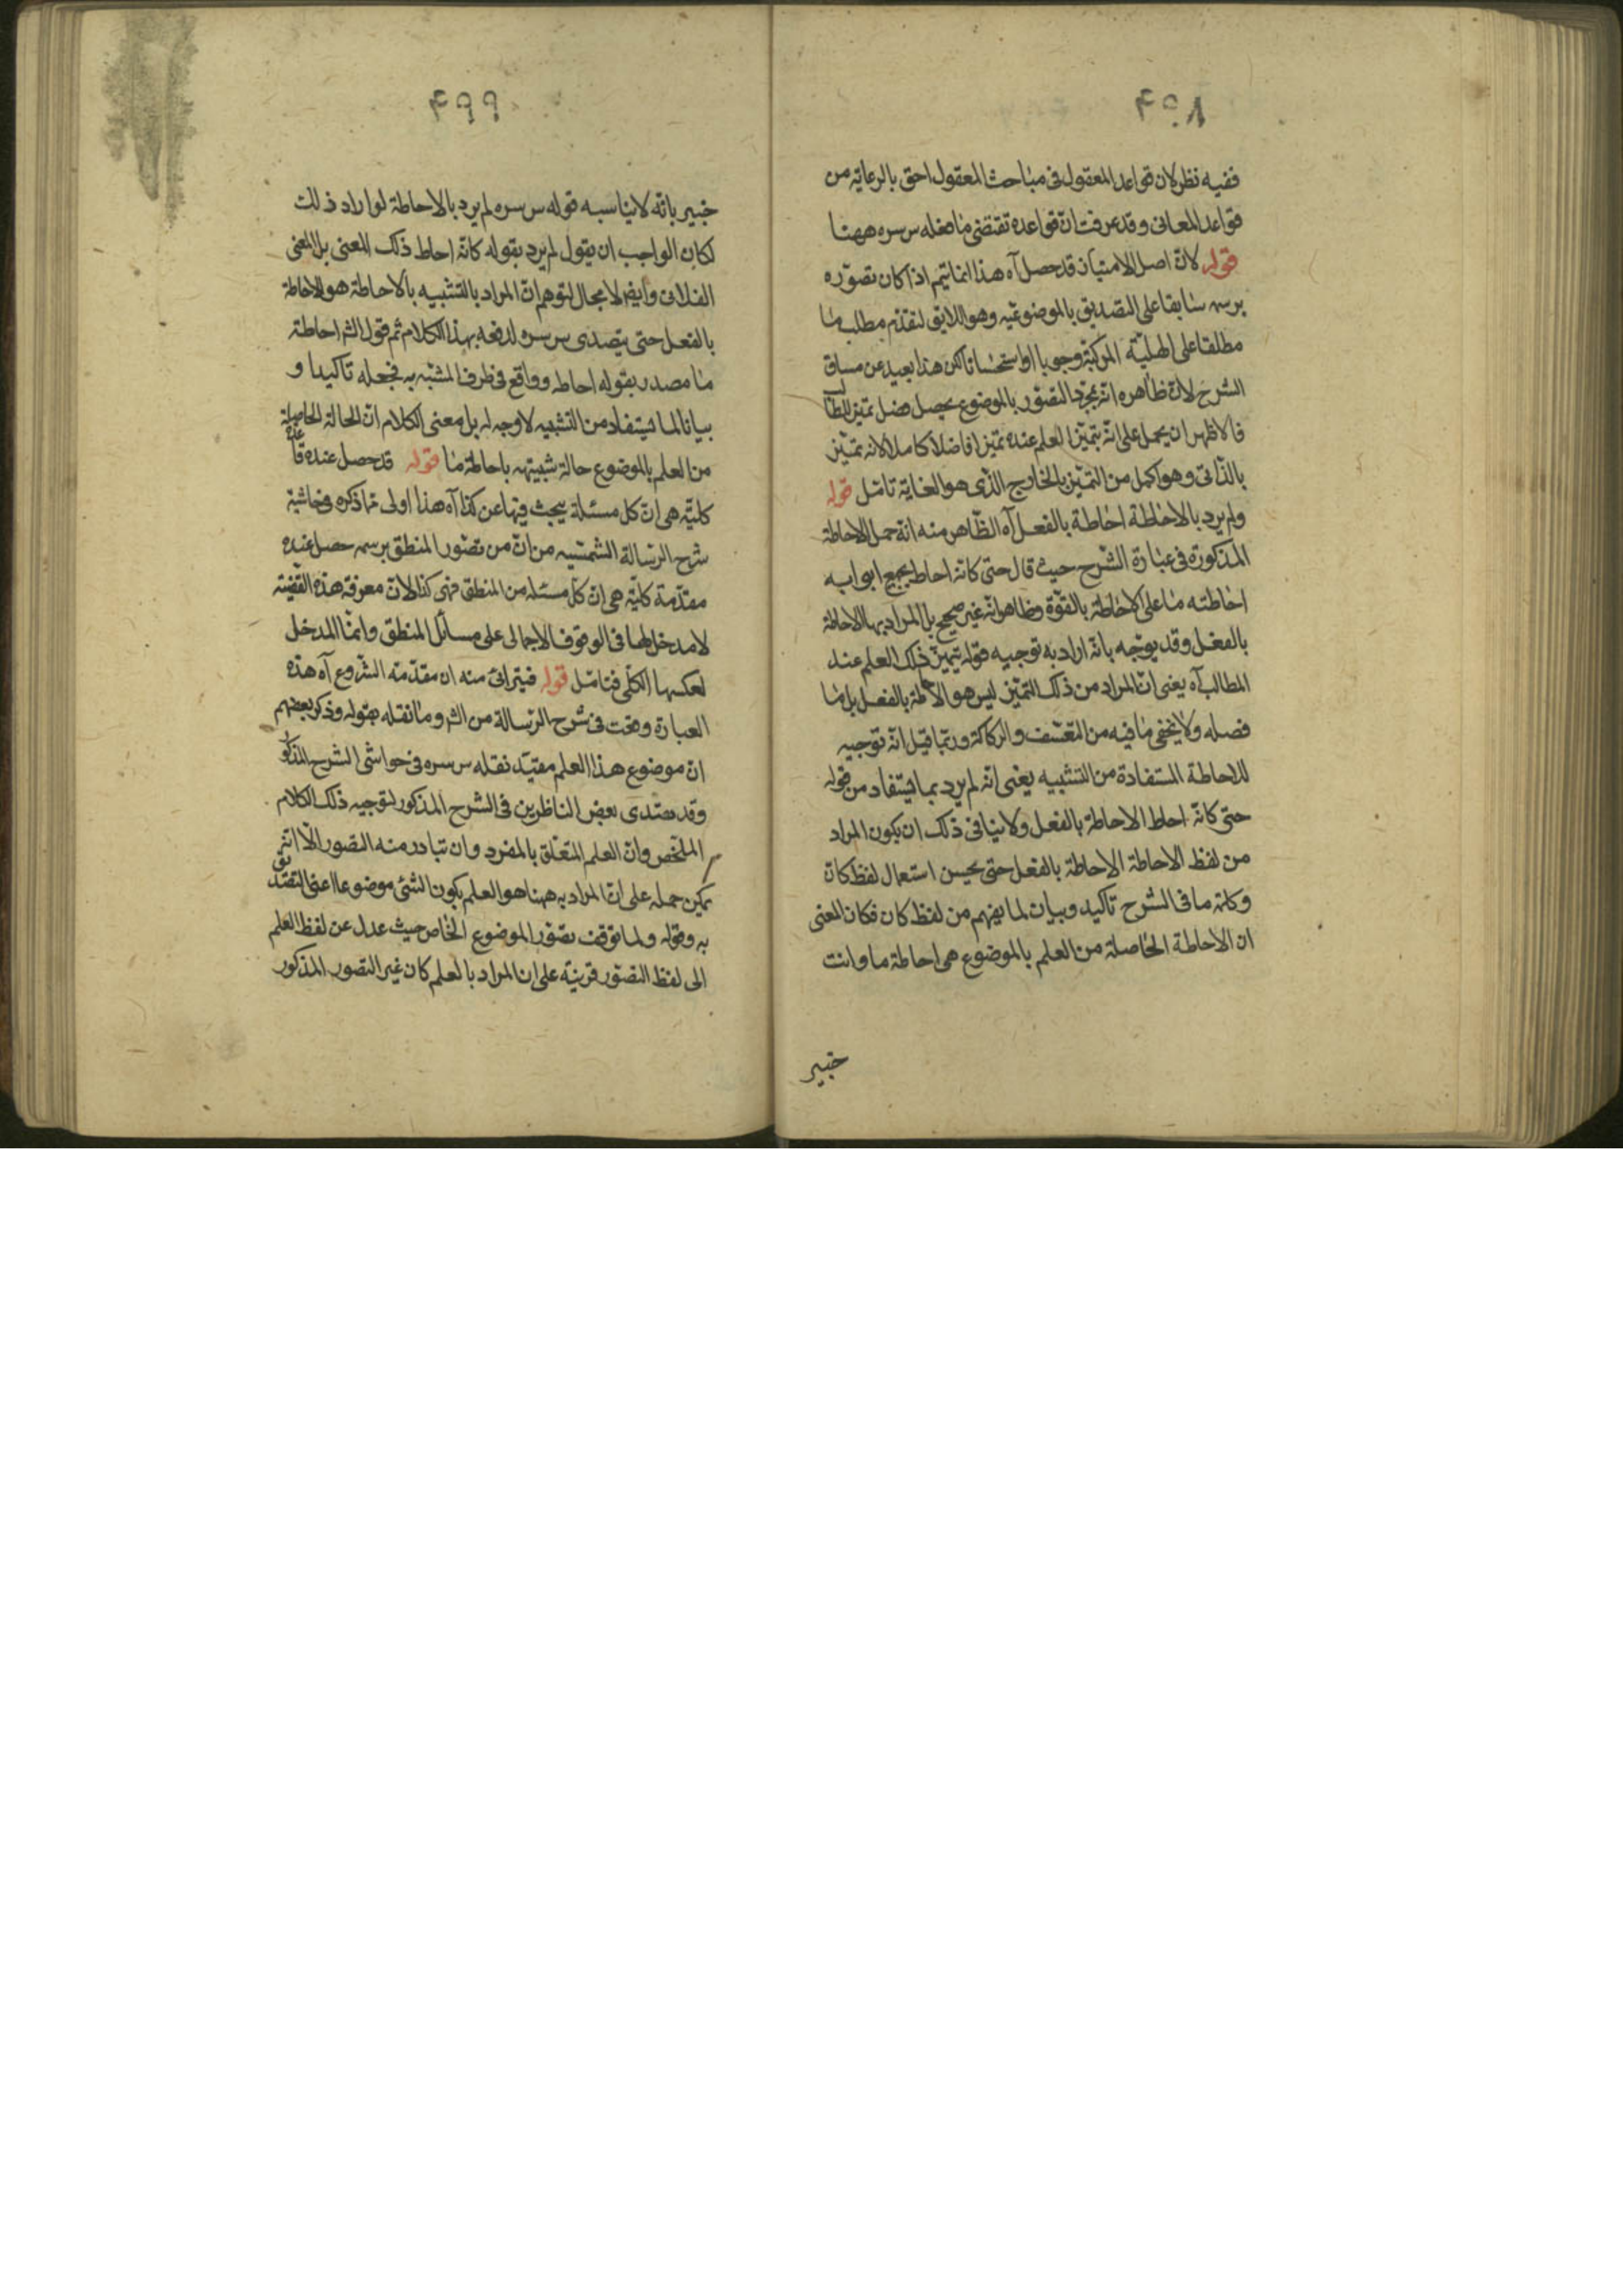 ٤٩٨
ففيه نظر لان قواعد المعقول فى مباحث المعقول احق بالرعاية من
قواعد المعانى وقد عرفت ان قواعده تقتضى ما فعله س سره ههنا
قوله لان اصل الامتياز قد حصل آه هذا انما يتم اذا كان تصوره
برسمه سابقا على التصديق بالموضوعيه وهو اللايق لتقدم مطلب ما
مطلقا على الهلية المركبة وجوبا او استحسانا لكن هذا بعيد عن مساق
الشرح لان ظاهره انه بمجرد التصور بالموضوع يحصل فضل تميز للطالب
فالاظهر ان يحمل على انه يتميز العلم عنده تميزا فاضلا كاملا لانه تميز
بالذاتى وهو اكمل من التميز بالخارج الذى هو الغاية تامل قوله
ولم يرد بالاحاطة احاطة بالفعل آه الظاهر منه انه حمل الاحاطة
المذكورة فى عبارة الشرح حيث قال حتى كانه احاط بجميع ابوابه
احاطته ما على الاحاطة بالقوة وظاهر انه غير صحيح بل المراد بها الاحاطة
بالفعل وقد يوجه بانه اراد به توجيه قوله يتميز ذلك العلم عند
المطالب آه يعنى ان المراد من ذلك التميز ليس هو الاحاطة بالفعل بل ما
فصله ولا يخفى ما فيه من التعسف والركاكة وربما قيل انه توجيه
للاحاطة المستفادة من التشبيه يعنى انه لم يرد بما يستفاد من قوله
حتى كانه احاط الاحاطة بالفعل ولا ينافى ذلك ان يكون المراد
من لفظ الاحاطة الاحاطة بالفعل حتى يحسن استعمال لفظ كان
وكلمة ما فى الشرح تاكيد وبيان لما يفهم من لفظ كان فكان المعنى
ان الاحاطة الحاصلة من العلم بالموضوع هى احاطة ما وانت
خبير
٤٩٩
خبير بانه لا يناسبه قوله س سره لم يرد بالاحاطة لو اراد ذلك
لكان الواجب ان يقول لم يرد بقوله كانه احاط ذلك المعنى بل المعنى
الفلانى وايضا لا مجال لتوهم ان المراد بالتشبيه بالاحاطة هو الاحاطة
بالفعل حتى يتصدى س سره لدفعه بهذا الكلام ثم قول الش احاطة
ما مصدر بقوله احاط وواقع فى طرف المشبه به فجعله تاكيدا و
بيانا لما يستفاد من التشبيه لا وجه له بل معنى الكلام ان الحالة الحاصلة
من العلم بالموضوع حالة شبيهة باحاطة ما قوله قد حصل عنده قاعدة
كلية هى ان كل مسئلة يبحث فيها عن كذا آه هذا اولى مما ذكره فى حاشية
شرح الرسالة الشمسيه من ان من تصور المنطق برسمه حصل عنده
مقدمة كلية هى ان كل مسئله من المنطق فهى كذا لان معرفة هذه القضية
لا مدخل لها فى الوقوف الاجمالى على مسائل المنطق وانما المدخل
لعكسها الكلى فتامل قوله فيترائى منه ان مقدمة الشروع آه هذه
العبارة وقعت فى شرح الرسالة من الش وما نقله بقوله وذكر بعضهم
ان موضوع هذا العلم مقيد نقله س سره فى حواشى الشرح المذكور
وقد تصدى بعض الناظرين فى الشرح المذكور لتوجيه ذلك الكلام
الملخص وان العلم المتعلق بالمفرد وان تبادر منه التصور الا انه
يمكن حمله على ان المراد به ههنا هو العلم بكون الشئ موضوعا اعنى التصديق
به وقوله ولما توقف تصور الموضوع الخاص حيث عدل عن لفظ العلم
الى لفظ التصور قرينة على ان المراد بالعلم كان غير التصور المذكور